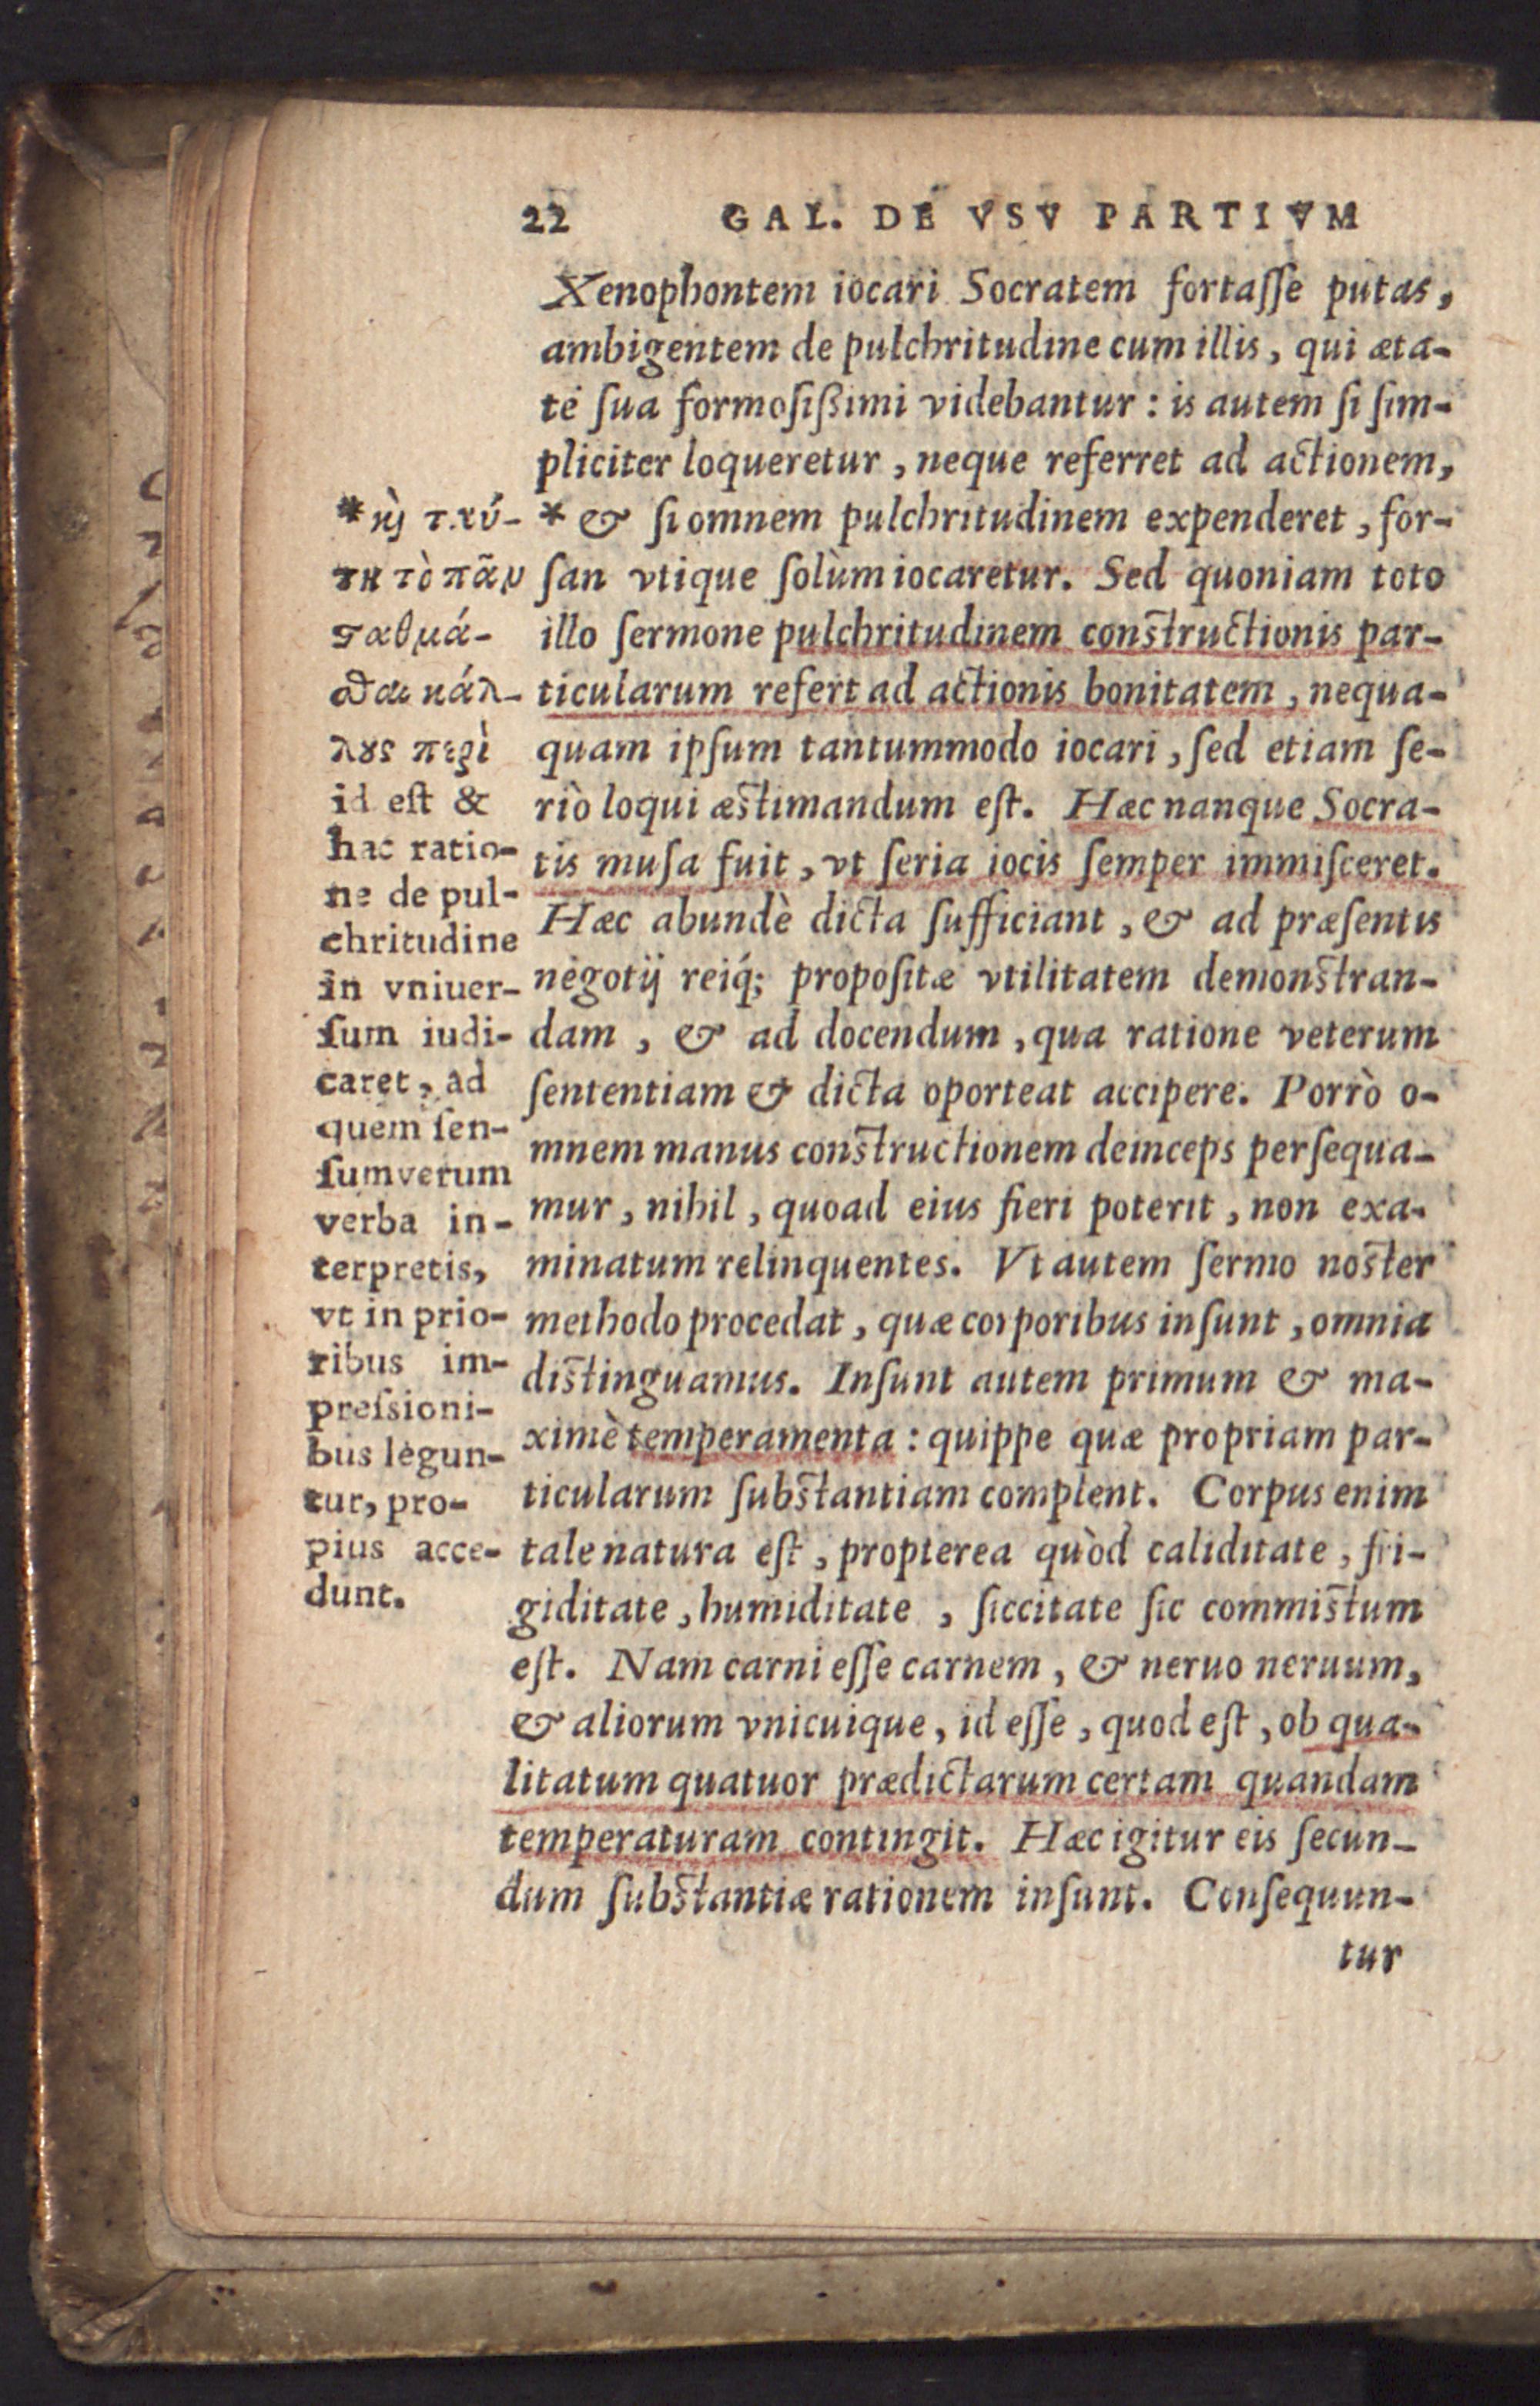 22 GAL. DE VSV PARTIVM
Xenophontem iocari Socratem fortaſſe putas,
ambigentem de pulchritudine cum illis, qui æta-
te ſua formoſißimi videbantur : is autem ſi ſim-
pliciter loqueretur, neque referret ad actionem,
* & ſi omnem pulchritudinem expenderet, for-
ſan vtique ſolùm iocaretur. Sed quoniam toto
illo ſermone pulchritudinem constructionis par-
ticularum refert ad actionis bonitatem, nequa-
quam ipſum tantummodo iocari, ſed etiam ſe-
riò loqui æstimandum eſt. Hæc nanque Socra-
tis muſa fuit, vt ſeria iocis ſemper immiſceret.
Hæc abundè dicta ſufficiant, & ad præſentis
negotij reiq́; propoſitæ vtilitatem demonstran-
dam, & ad docendum, qua ratione veterum
ſententiam & dicta oporteat accipere. Porrò o-
mnem manus constructionem deinceps perſequa-
mur, nihil, quoad eius fieri poterit, non exa-
minatum relinquentes. Vt autem ſermo noster
methodo procedat, quæ corporibus inſunt, omnia
distinguamus. Inſunt autem primum & ma-
ximè temperamenta : quippe quæ propriam par-
ticularum ſubstantiam complent. Corpus enim
tale natura eſt, propterea quòd caliditate, fri-
giditate, humiditate, ſiccitate ſic commistum
eſt. Nam carni eſſe carnem, & neruo neruum,
& aliorum vnicuique, id eſſe, quod eſt, ob qua-
litatum quatuor prædictarum certam quandam
temperaturam contingit. Hæc igitur eis ſecun-
dum ſubstantiæ rationem inſunt. Conſequun-
tur
*
τὸ πᾶν
κάλ-
λους περὶ
id eſt &
hac ratio-
ne de pul-
chritudine
in vniuer-
ſum iudi-
caret, ad
quem ſen-
ſum verum
verba in-
terpretis,
vt in prio-
ribus im-
preſsioni-
bus legun-
tur, pro-
pius acce-
dunt.